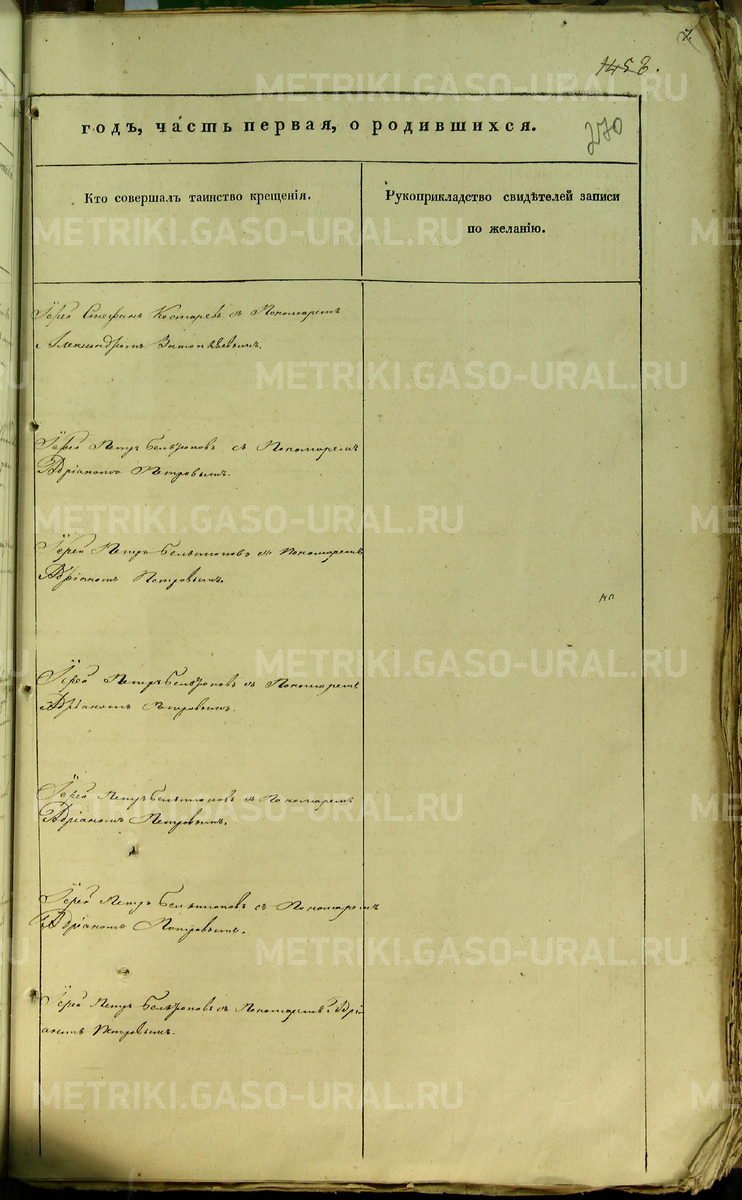 7.
1458.
годъ, часть первая, о родившихся.
270
Кто совершалъ таинство крещенія.
Рукоприкладство свидѣтелей записи
по желанію.
Іерей Стефанъ Костаревъ съ Пономаремъ
Александромъ
Іерей Петръ съ Пономаремъ
Адріаномъ Петровымъ.
Іерей Петръ съ Пономаремъ
Адріаномъ Петровымъ.
Іерей Петръ съ Пономаремъ
Адріаномъ Петровымъ.
Іерей Петръ съ Пономаремъ
Адріаномъ Петровымъ.
Іерей Петръ съ Пономаремъ
Адріаномъ Петровымъ.
Іерей Петръ съ Пономаремъ Адрі
аномъ Петровымъ.
METRIKI.GASO-URAL.RU